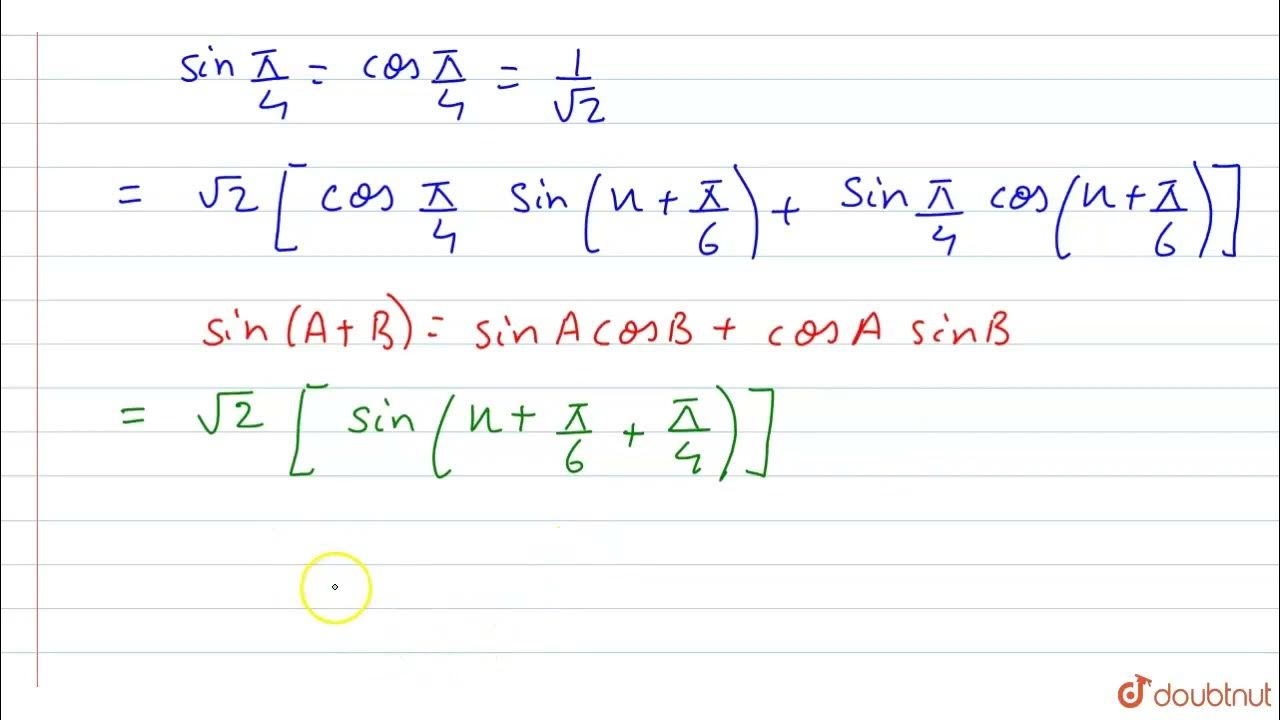 sin π/4 = cos π/4 = 1/√2
= √2 [ cos π/4 sin (x + π/6) + sin π/4 cos (x + π/6) ]
sin (A + B) = sin A cos B + cos A sin B
= √2 [ sin (x + π/6 + π/4) ]
doubtnut